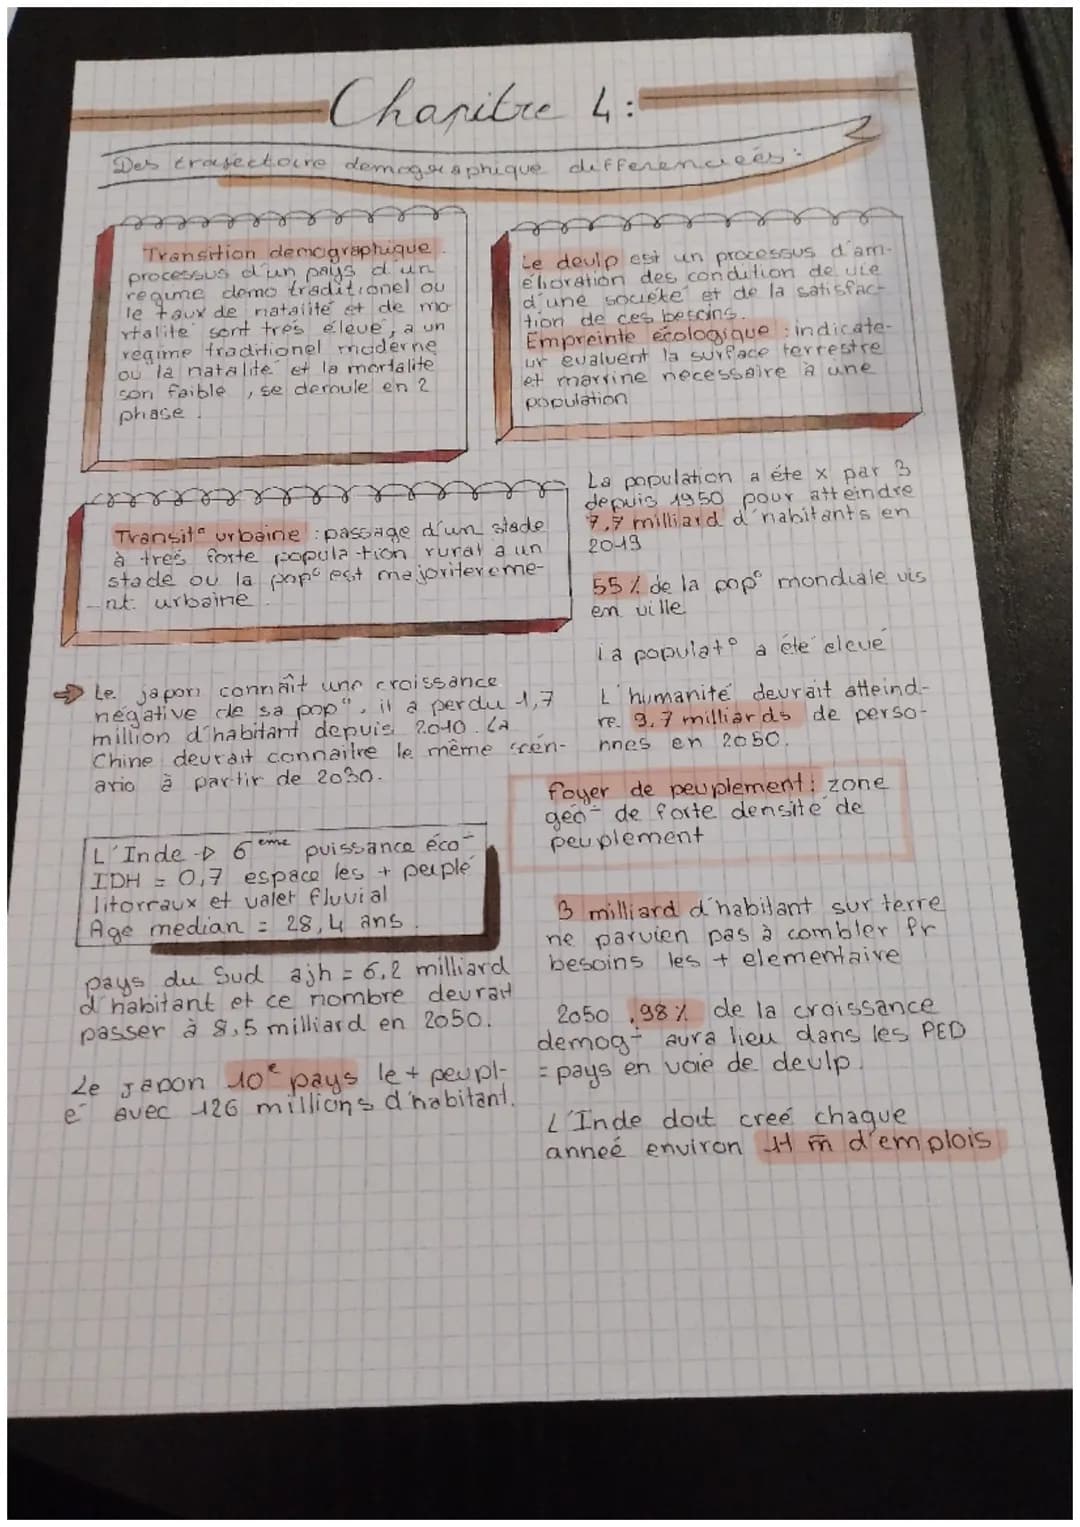 Chapitre 4 :
Des trajectoire demographique differenciées :
Transition demographique
processus d'un pays d'un
regime demo traditionel ou
le taux de natalité et de mo
rtalité sont trés élevé, a un
regime traditionel moderne
ou la natalité et la mortalite
son faible, se deroule en 2
phase.
Le devlp est un processus d'am-
élioration des condition de vie
d'une société et de la satisfac-
tion de ces besoins.
Empreinte écologique : indicate-
ur evaluent la surface terrestre
et marrine necessaire à une
population
Transit° urbaine : passage d'un stade
à trés forte popula-tion rural a un
stade ou la pop° est majoritereme-
-nt urbaine.
La population a éte x par 3
depuis 1950 pour atteindre
7,7 milliard d'habitants en
2019
55 % de la pop° mondiale vis
en ville
la populat° a éte éleve
L'humanité devrait atteind-
re 9,7 milliards de perso-
nnes en 2050.
→ Le japon connaît une croissance
négative de sa pop°, il a perdu 1,7
million d'habitant depuis 2010. La
Chine devrait connaitre le même scén-
ario à partir de 2030.
foyer de peuplement : zone
géo- de forte densité de
peuplement
L'Inde → 6eme puissance éco-
IDH = 0,7 espace les + peuplé
litorraux et valet fluvial
Age median = 28,4 ans.
3 milliard d'habitant sur terre
ne parvien pas à combler lr
besoins les + elementaire
pays du Sud ajh = 6,2 milliard
d'habitant et ce nombre devrait
passer à 8,5 milliard en 2050.
2050, 98 % de la croissance
demog- aura lieu dans les PED
= pays en voie de devlp.
Le Japon 10e pays le + peupl-
é avec 126 millions d'habitant.
L'Inde doit creé chaque
anneé environ 11 m̄ d'emplois